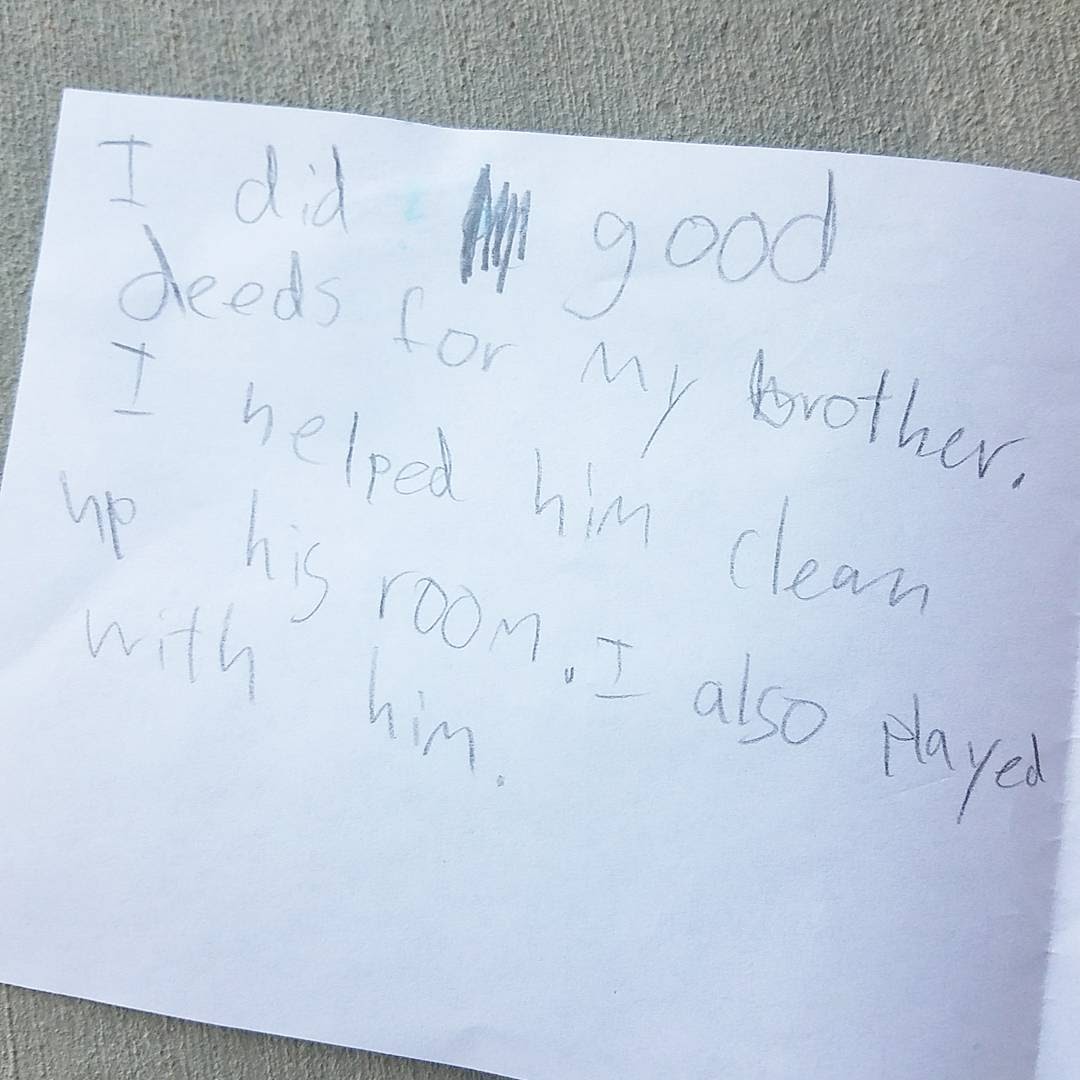 I did good
deeds for my brother.
I helped him clean
up his room. I also played
with him.